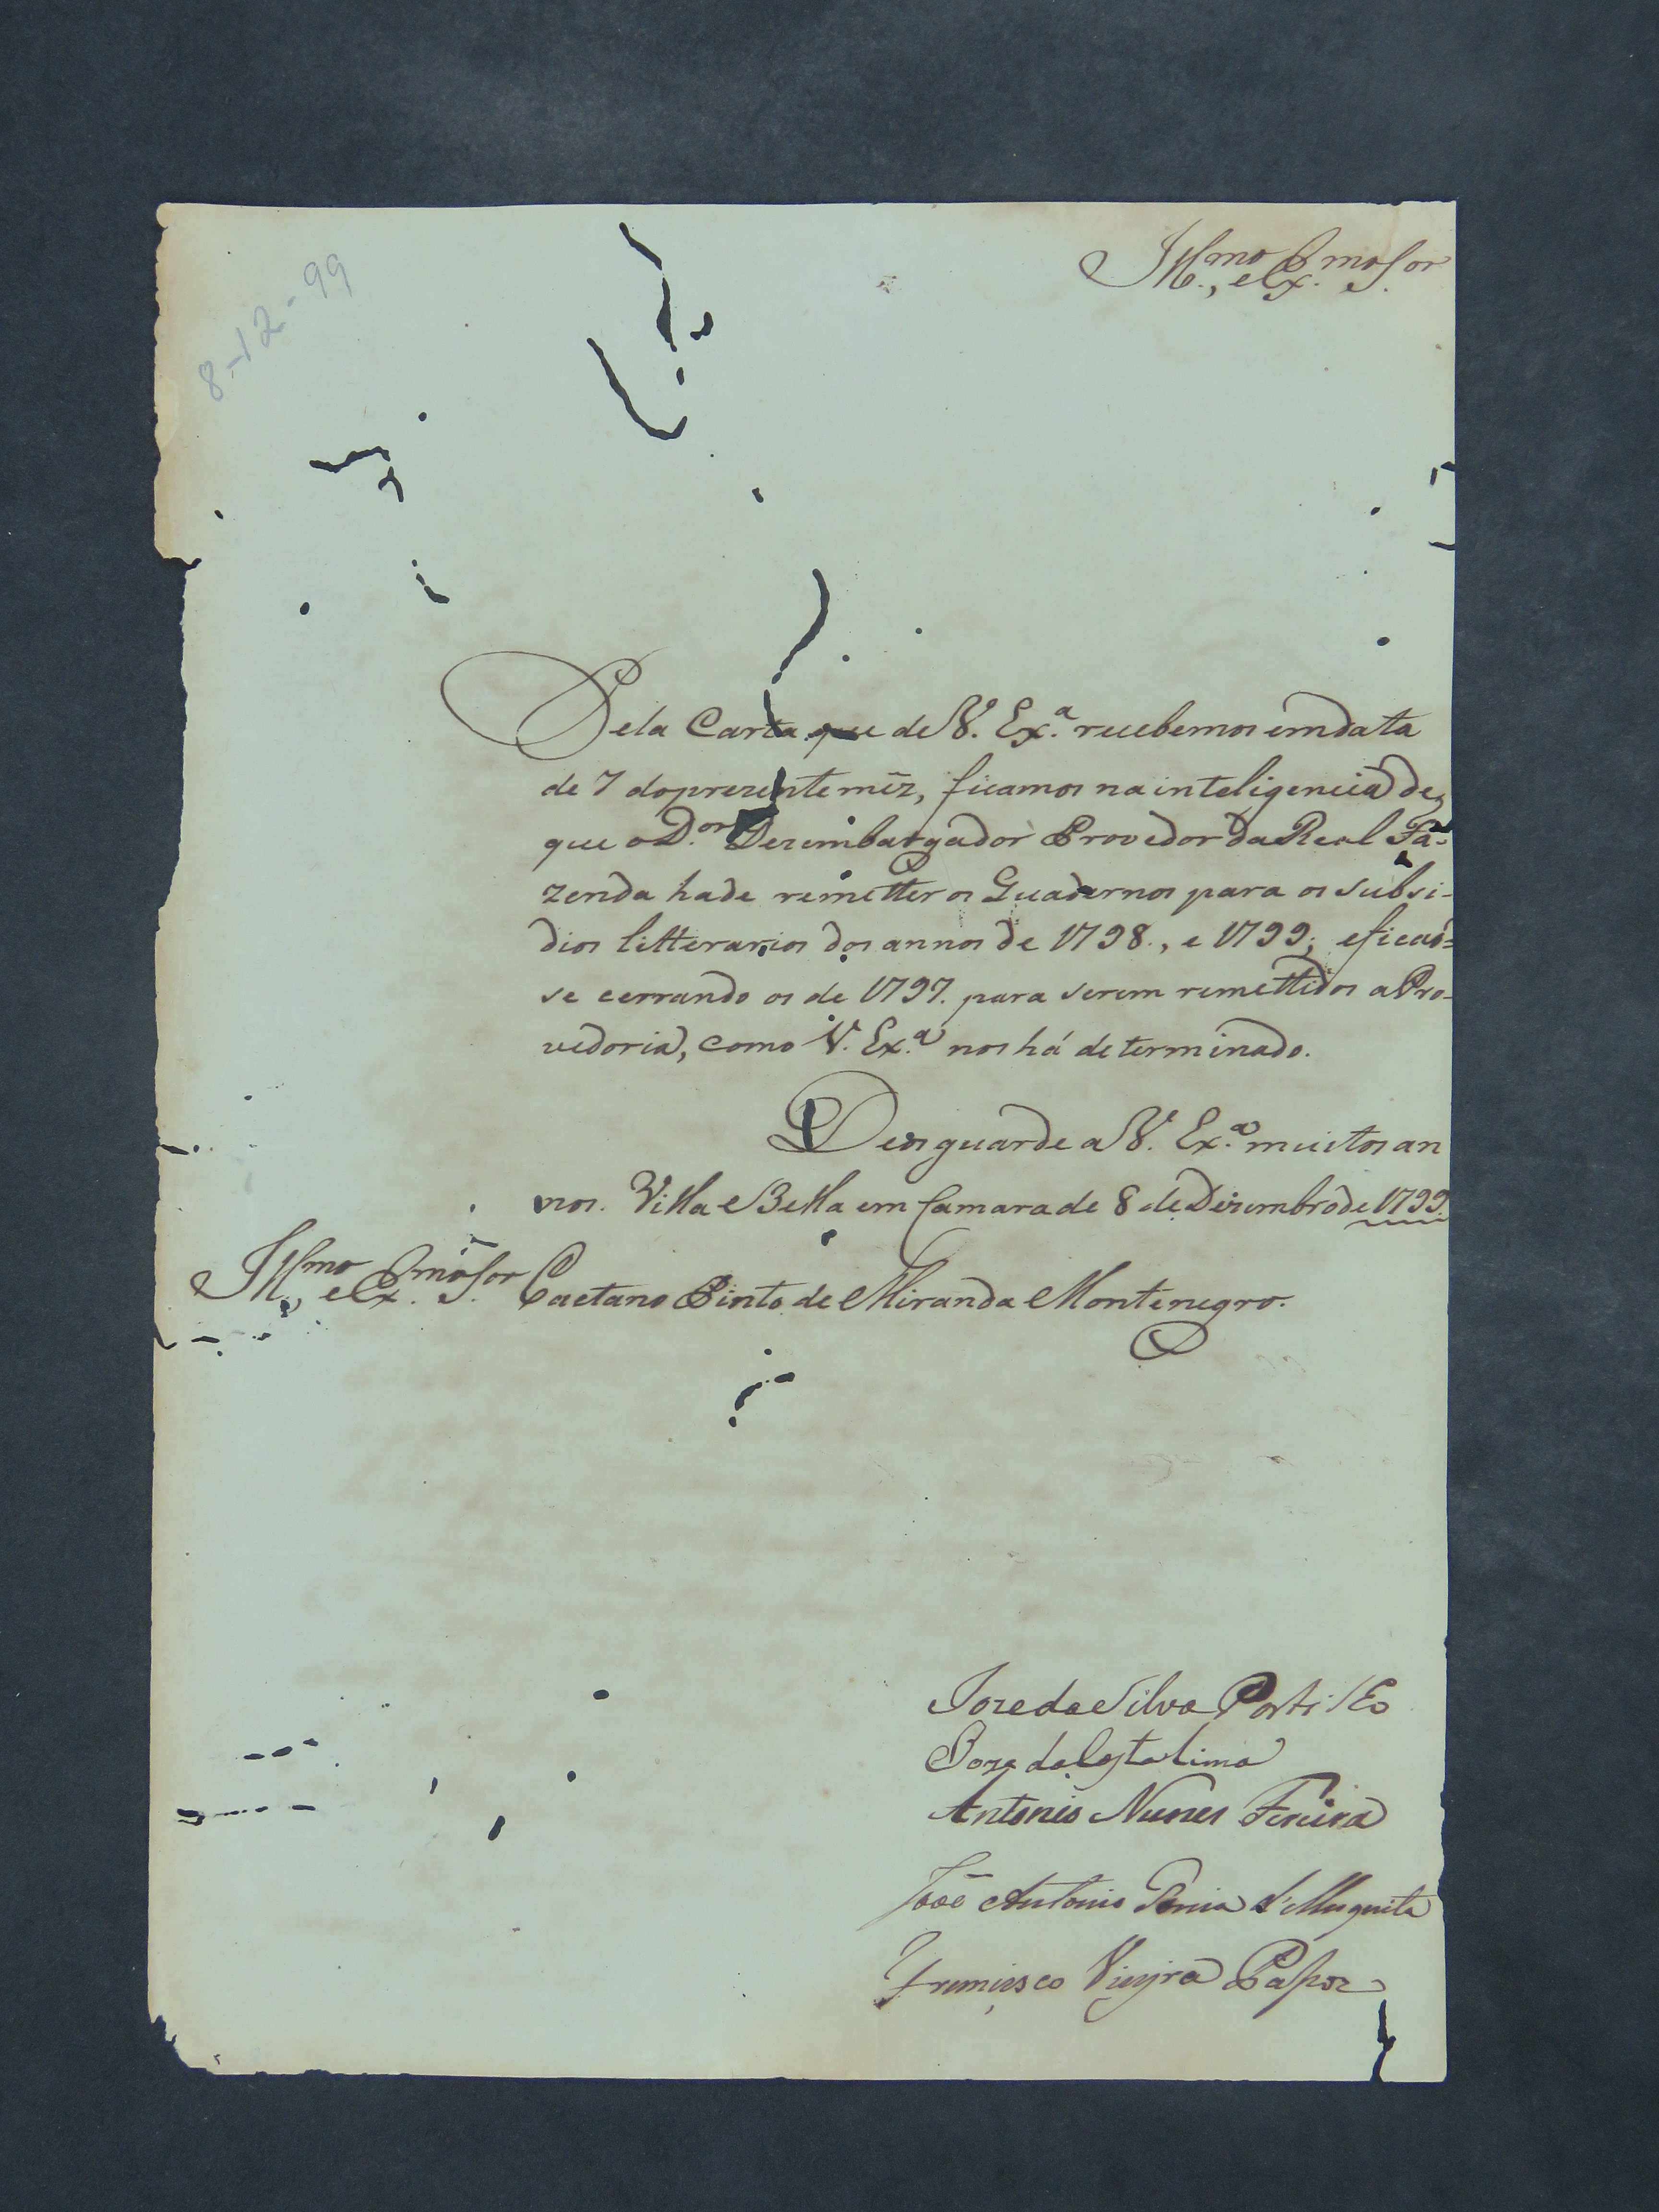 8-12-99
Ill.mo, e Ex.mo S.or
Pela Carta que de V. Ex.a recebemos em data
de 7 do prezente mêz, ficamos na inteligencia de
que o D.or Dezembargador Provedor da Real Fa-
zenda hade remetter os Quadernos para os subsi-
dios litterarios dos annos de 1798., e 1799; e ficaõ-
se cerrando os de 1797. para serem remettidos a Pro-
vedoria, como V. Ex.a nos há determinado.
Deos guarde a V. Ex.a muitos an
nos. Villa Bella em Camara de 8 de Dezembro de 1799.
Ill.mo, e Ex.mo S.or Caetano Pinto de Miranda Montenegro.
Joze da Silva
Joze da Costa Lima
Antonio Nunes
João Antonio
Francisco Vieyra Passos